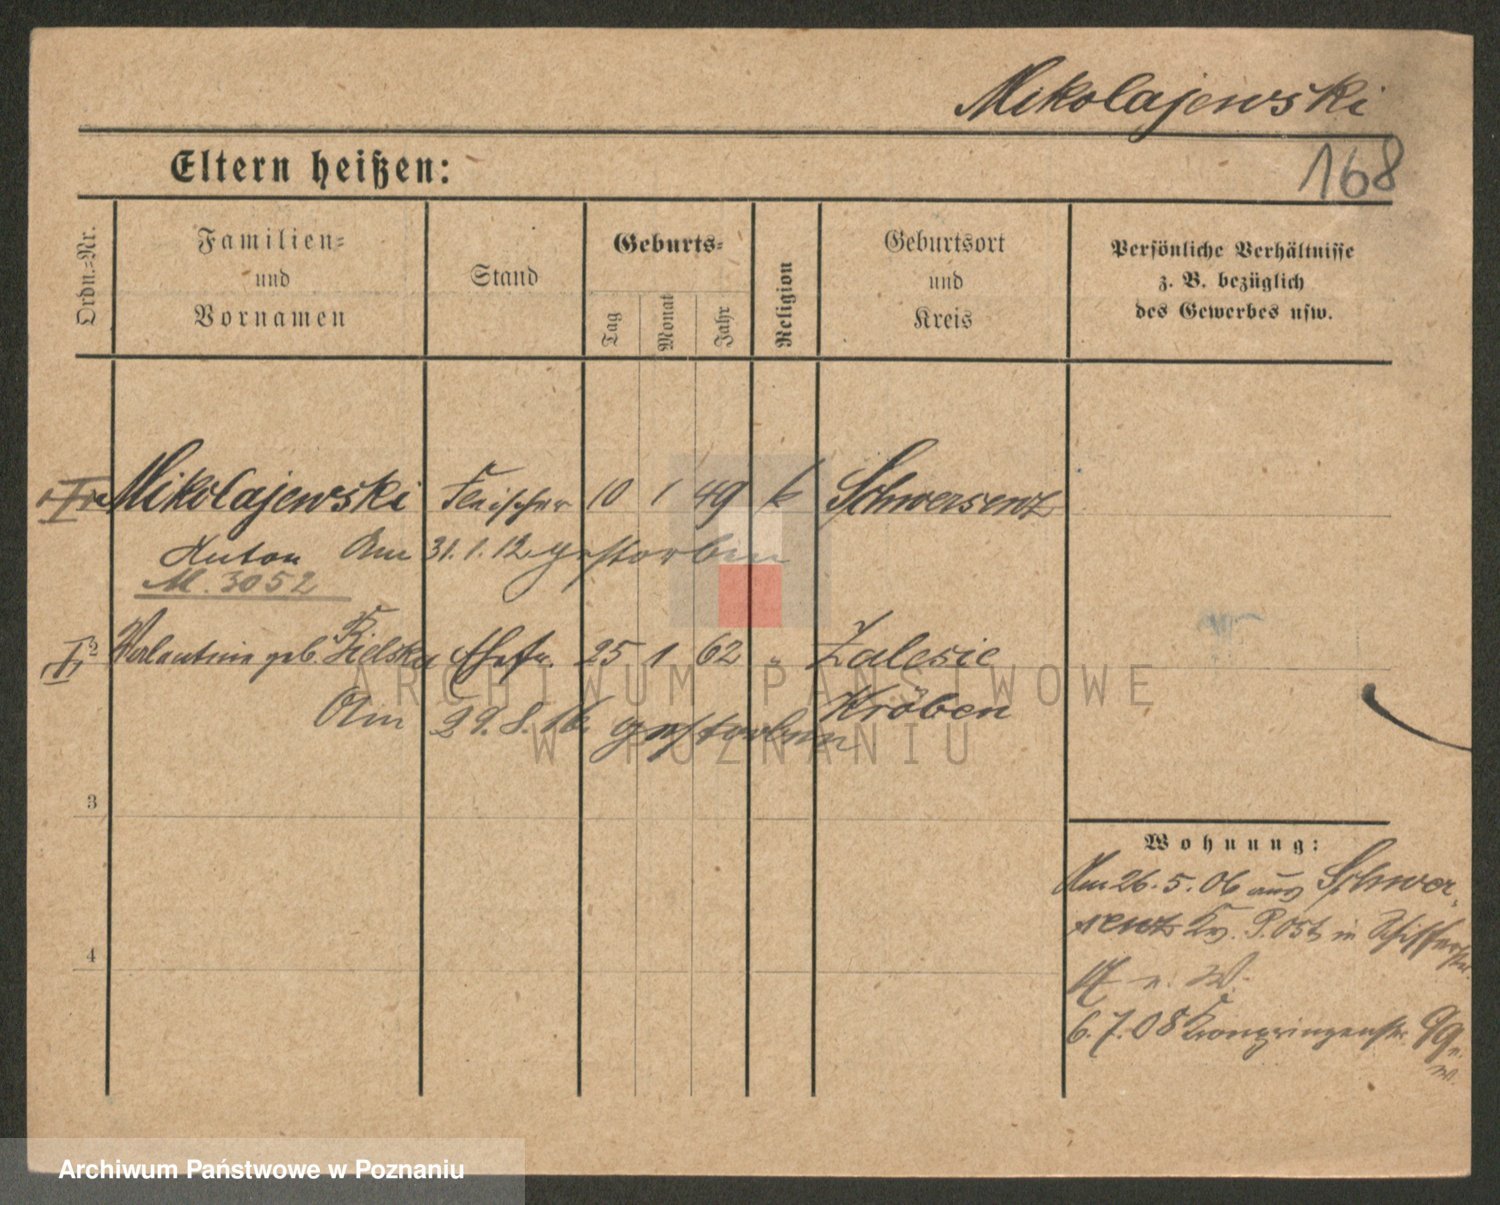 Mikolajewski
168
Eltern heißen:
Ordn.-Nr.
Familien- und Vornamen
Stand
Geburts-
Tag
Monat
Jahr
Religion
Geburtsort und Kreis
Persönliche Verhältnisse
z. B. bezüglich
des Gewerbes usw.
Mikolajewski Fleischer 10 1 49 k Schwersenz
Anton Am 31.1.12 gestorben
M. 3052
2 Valentine geb. Bielska Ehefr. 25 1 62 " Zalesie
Kröben
Am 29.8.16. gestorben
3
4
Wohnung:
Am 26.5.06 aus Schwer-
senz Kr. P. Ost in Schifferstr.
17 n. W.
6.7.08 Kronprinzenstr. 99
n. W.
ARCHIWUM PAŃSTWOWE
W POZNANIU
Archiwum Państwowe w Poznaniu